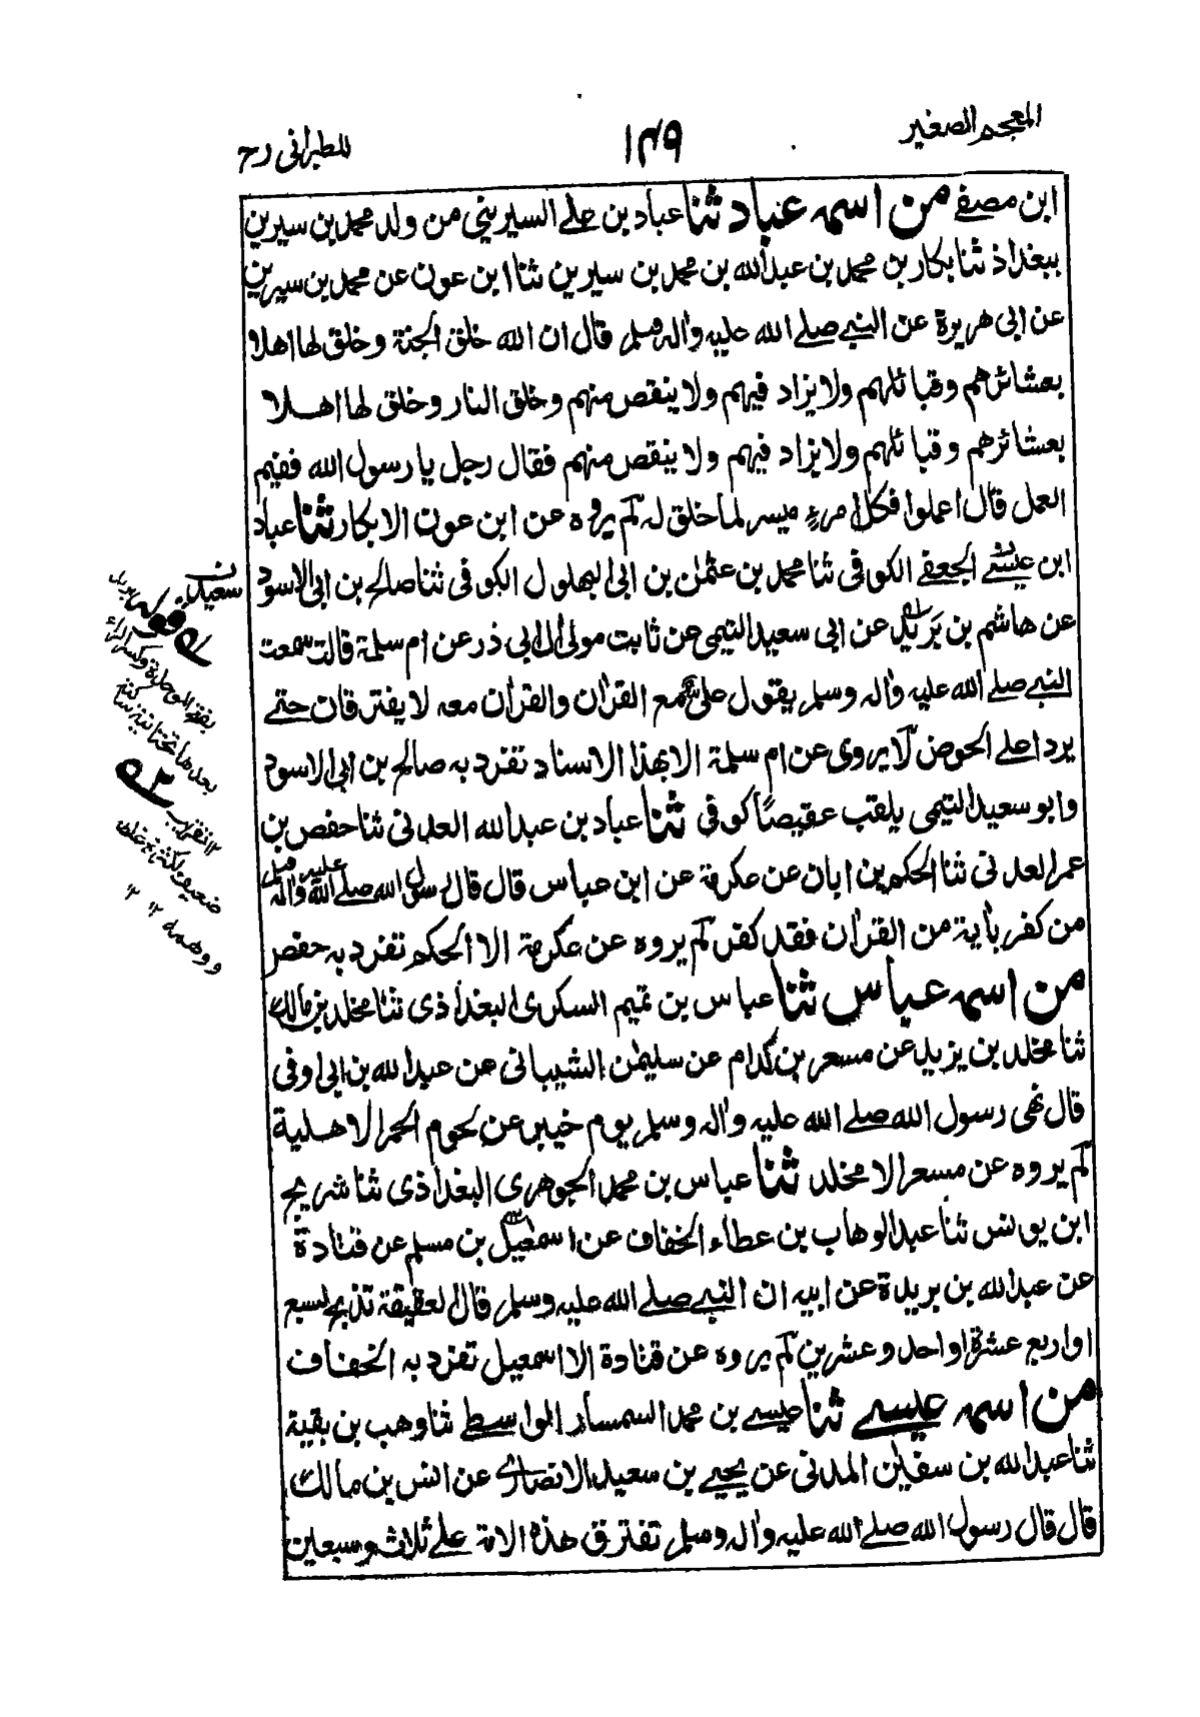 المعجم الصغير
١٤٩
للطبراني رح
ابن مصفے من اسمه عباد ثنا عباد بن علے السيريني من ولد محمد بن سيرين
ببغداذ ثنا بكار بن محمد بن عبد الله بن محمد بن سيرين ثنا ابن عون عن محمد بن سيرين
عن ابي هريرة عن النبے صلے الله عليه واٰله وسلم قال ان الله خلق الجنة وخلق لها اهلا
بعشائرهم وقبائلهم ولا يزاد فيهم ولا ينقص منهم وخلق النار وخلق لها اهلا
بعشائرهم وقبائلهم ولا يزاد فيهم ولا ينقص منهم فقال رجل يا رسول الله ففيم
العمل قال اعملوا فكل امرءٍ ميسر لما خلق له لم يروه عن ابن عون الا بكار ثنا عباد
ابن عيسے الجعفے الكوفي ثنا محمد بن عثمٰن بن ابي البهلول الكوفي ثنا صالح بن ابي الاسود
عن هاشم بن بَرِيْد عن ابي سعيد التيمي عن ثابت مولى اٰل ابي ذر عن ام سلمة قالت سمعت
النبے صلے الله عليه واٰله وسلم يقول علي مع القراٰن والقراٰن معه لا يفترقان حتے
يردا علے الحوض لا يروى عن ام سلمة الا بهذا الاسناد تفرد به صالح بن ابي الاسود
وابو سعيد التيمي يلقب عقيصًا كوفي ثنا عباد بن عبد الله العدني ثنا حفص بن
عمر العدني ثنا الحكم بن ابان عن عكرمة عن ابن عباس قال قال رسول الله صلے الله عليه واٰله وسلم
من كفر باٰية من القراٰن فقد كفر لم يروه عن عكرمة الا الحكم تفرد به حفص
من اسمه عباس ثنا عباس بن تميم السكرى البغداذى ثنا مخلد بن مالك
ثنا مخلد بن يزيد عن مسعر بن كدام عن سليمٰن الشيباني عن عبد الله بن ابي اوفى
قال نهى رسول الله صلے الله عليه واٰله وسلم يوم خيبر عن لحوم الحمر الاهلية
لم يروه عن مسعر الا مخلد ثنا عباس بن محمد الجوهرى البغداذى ثنا شريح
ابن يونس ثنا عبد الوهاب بن عطاء الخفاف عن اسمٰعيل بن مسلم عن قتادة
عن عبد الله بن بريدة عن ابيه ان النبے صلے الله عليه وسلم قال العقيقة تذبح لسبع
او اربع عشرة او احد وعشرين لم يروه عن قتادة الا اسمعيل تفرد به الخفاف
من اسمه عيسے ثنا عيسے بن محمد السمسار الواسطے ثنا وهب بن بقية
ثنا عبد الله بن سفيٰن المدني عن يحيے بن سعيد الانصارى عن انس بن مالك
قال قال رسول الله صلے الله عليه واٰله وسلم تفترق هذه الامة علے ثلاث وسبعين
سعيد ن
له قوله بريد
بفتح الموحدة وكسر الراء
بعدها تحتانية ساكنة
١٢ تقريب
ضعيف
ووهمه ١٢